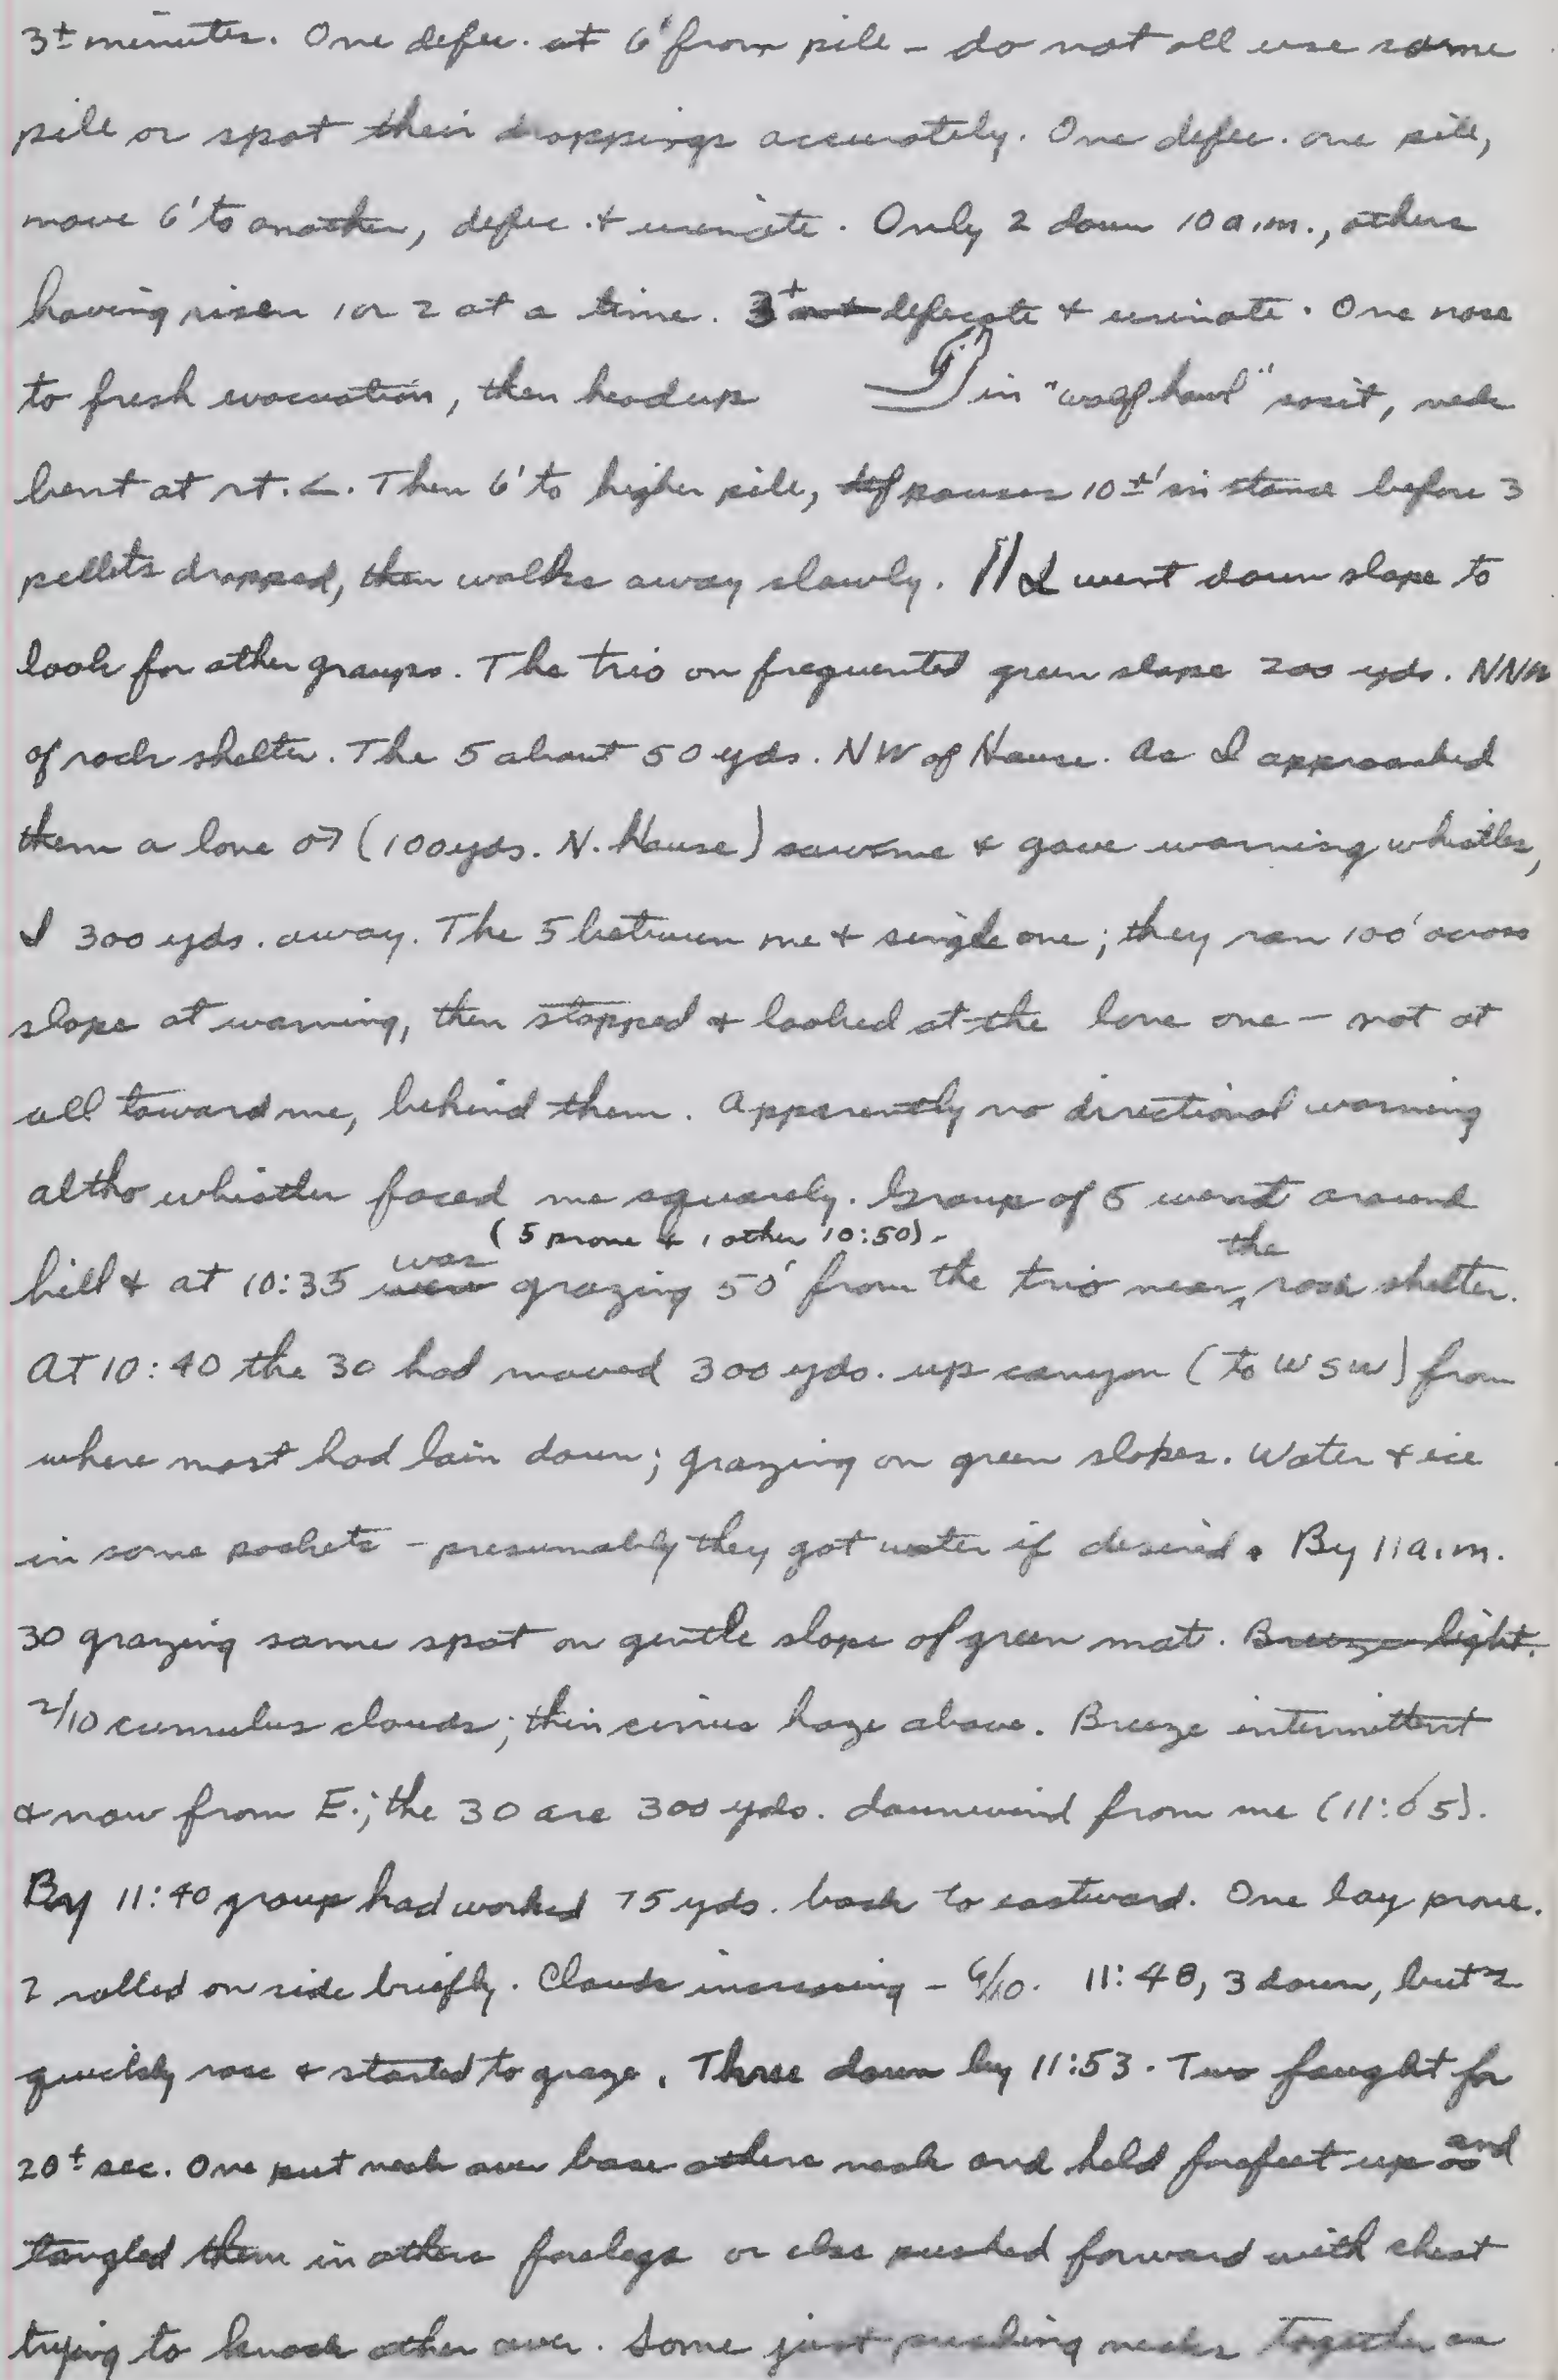 3± minutes. One defec. at 6' from pile - do not all use same
pile or spot their droppings accurately. One defec. one pile,
move 6' to another, defec. & urinate. Only 2 down 10 a.m., others
having risen 1 or 2 at a time. 3+ defecate & urinate. One nose
to fresh evacuation, then head up in "wolf howl" posit, neck
bent at rt. ∠. Then 6' to higher pile, pauses 10± in stance before 3
pellets dropped, then walks away slowly. // I went down slope to
look for other groups. The trio on frequented green slope 200 yds. NNW
of rock shelter. The 5 about 50 yds. NW of House. As I approached
them a lone ♂ (100 yds. N. House) saw me & gave warning whistles,
I 300 yds. away. The 5 between me & single one; they ran 100' across
slope at warning, then stopped & looked at the lone one - not at
all toward me, behind them. Apparently no directional warning
altho whistler faced me squarely. Group of 5 went around
(5 prone & 1 other 10:50).
hill & at 10:35 was grazing 50' from the trio near the rock shelter.
At 10:40 the 30 had moved 300 yds. up canyon (to WSW) from
where most had lain down; grazing on green slopes. Water & ice
in some pockets - presumably they got water if desired. By 11 a.m.
30 grazing same spot on gentle slope of green mat. Breeze light.
2/10 cumulus clouds; thin cirrus haze above. Breeze intermittent
& now from E.; the 30 are 300 yds. downwind from me (11:05).
By 11:40 group had worked 75 yds. back to eastward. One lay prone.
2 rolled on side briefly. Clouds increasing - 6/10. 11:48, 3 down, but 2
quickly rose & started to graze. Three down by 11:53. Two fought for
20± sec. One put neck over base others neck and held forefeet up and
tangled them in others forelegs or else pushed forward with chest
trying to knock other over. Some just pushing necks together as